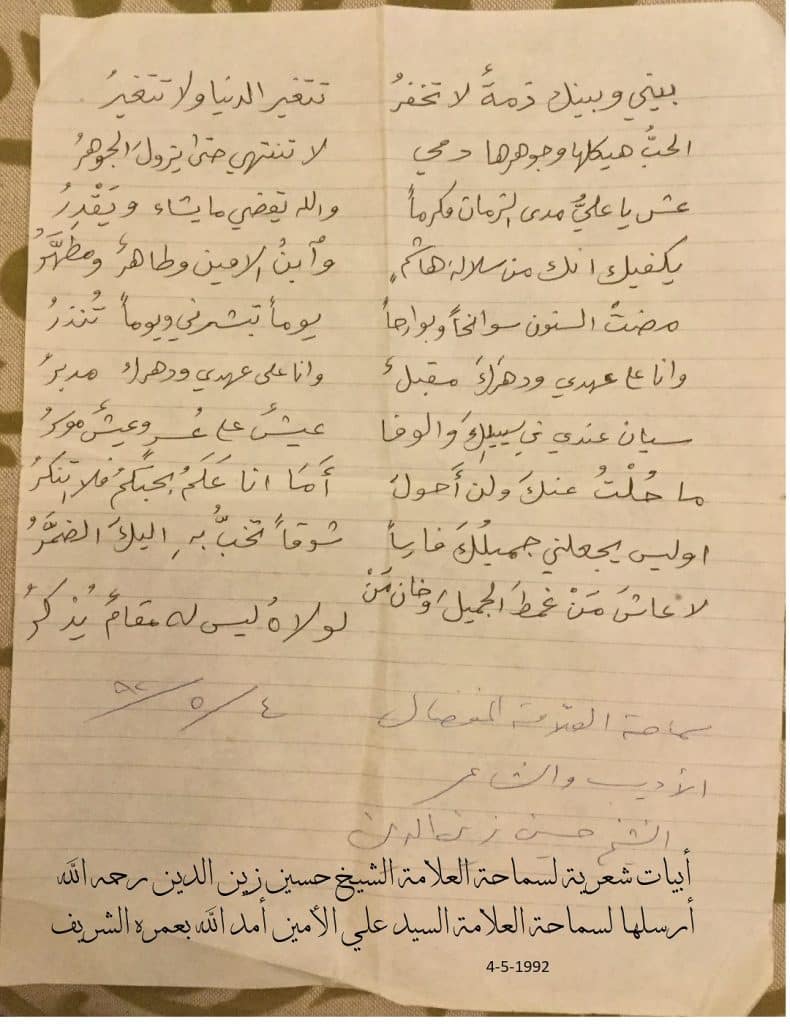 بيني وبينك ذمةٌ لا تخفرُ تتغير الدنيا ولا تتغيرُ
الحبُّ هيكلها وجوهرها دمي لا تنتهي حتى يزولَ الجوهرُ
عش يا عليُّ مدى الزمان مكرماً والله يقضي ما يشاء ويَقْدِرُ
يكفيك انك من سلالة هاشمٍ وٱبنُ الامين وطاهرٌ ومطهَّرُ
مضتْ السنون سوانحاً وبوارحاً يوماً تبشرني ويوماً تُنذرُ
وانا على عهدي ودهرَكَ مقبلٌ وانا على عهدي ودهرك مدبرُ
سيان عندي في سبيلِكَ والوفا عيشٌ على عُسرٍ وعيشٌ موسرُ
ما حُلْتُ عنكَ ولن أَحولَ أَمَا انا عَلَمٌ بحبّكمُ فلا يُنكَرُ
اوليس يجعلني جميلُكَ فارساً شوقاً تخبُّ بهِ اليكَ الضمَّرُ
لا عاشَ مَنْ غمطَ الجميلَ وخان مَنْ لولاهُ ليس له مقامٌ يُذكرُ
سماحة العلامة المفضال ٤/٥/٩٢
الأديب والشاعر
الشيخ حسين زين الدين
أبيات شعرية لسماحة العلامة الشيخ حسين زين الدين رحمه الله
أرسلها لسماحة العلامة السيد علي الأمين أمد الله بعمره الشريف
4-5-1992